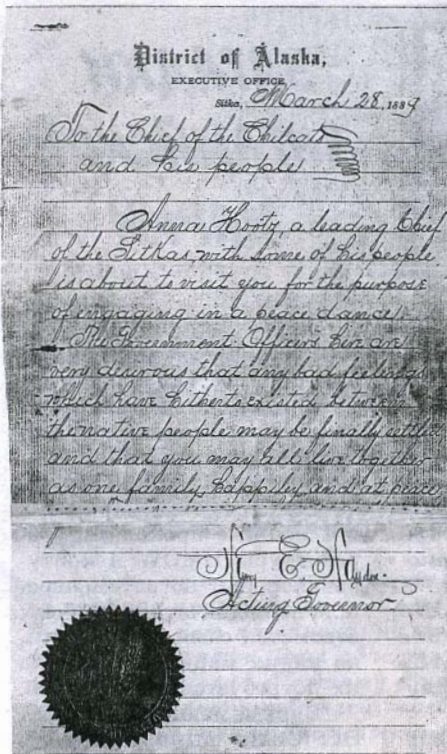 District of Alaska,
EXECUTIVE OFFICE,
Sitka, March 28, 1889
To the Chief of the Chilcats
and his people
Anna Hootz, a leading Chief
of the Sitkas, with some of his people
is about to visit you for the purpose
of engaging in a peace dance.
The Government Officers here are
very desirous that any bad feelings
which have hitherto existed between
the native people may be finally settled
and that you may all live together
as one family, happily and at peace
E.
Acting Governor